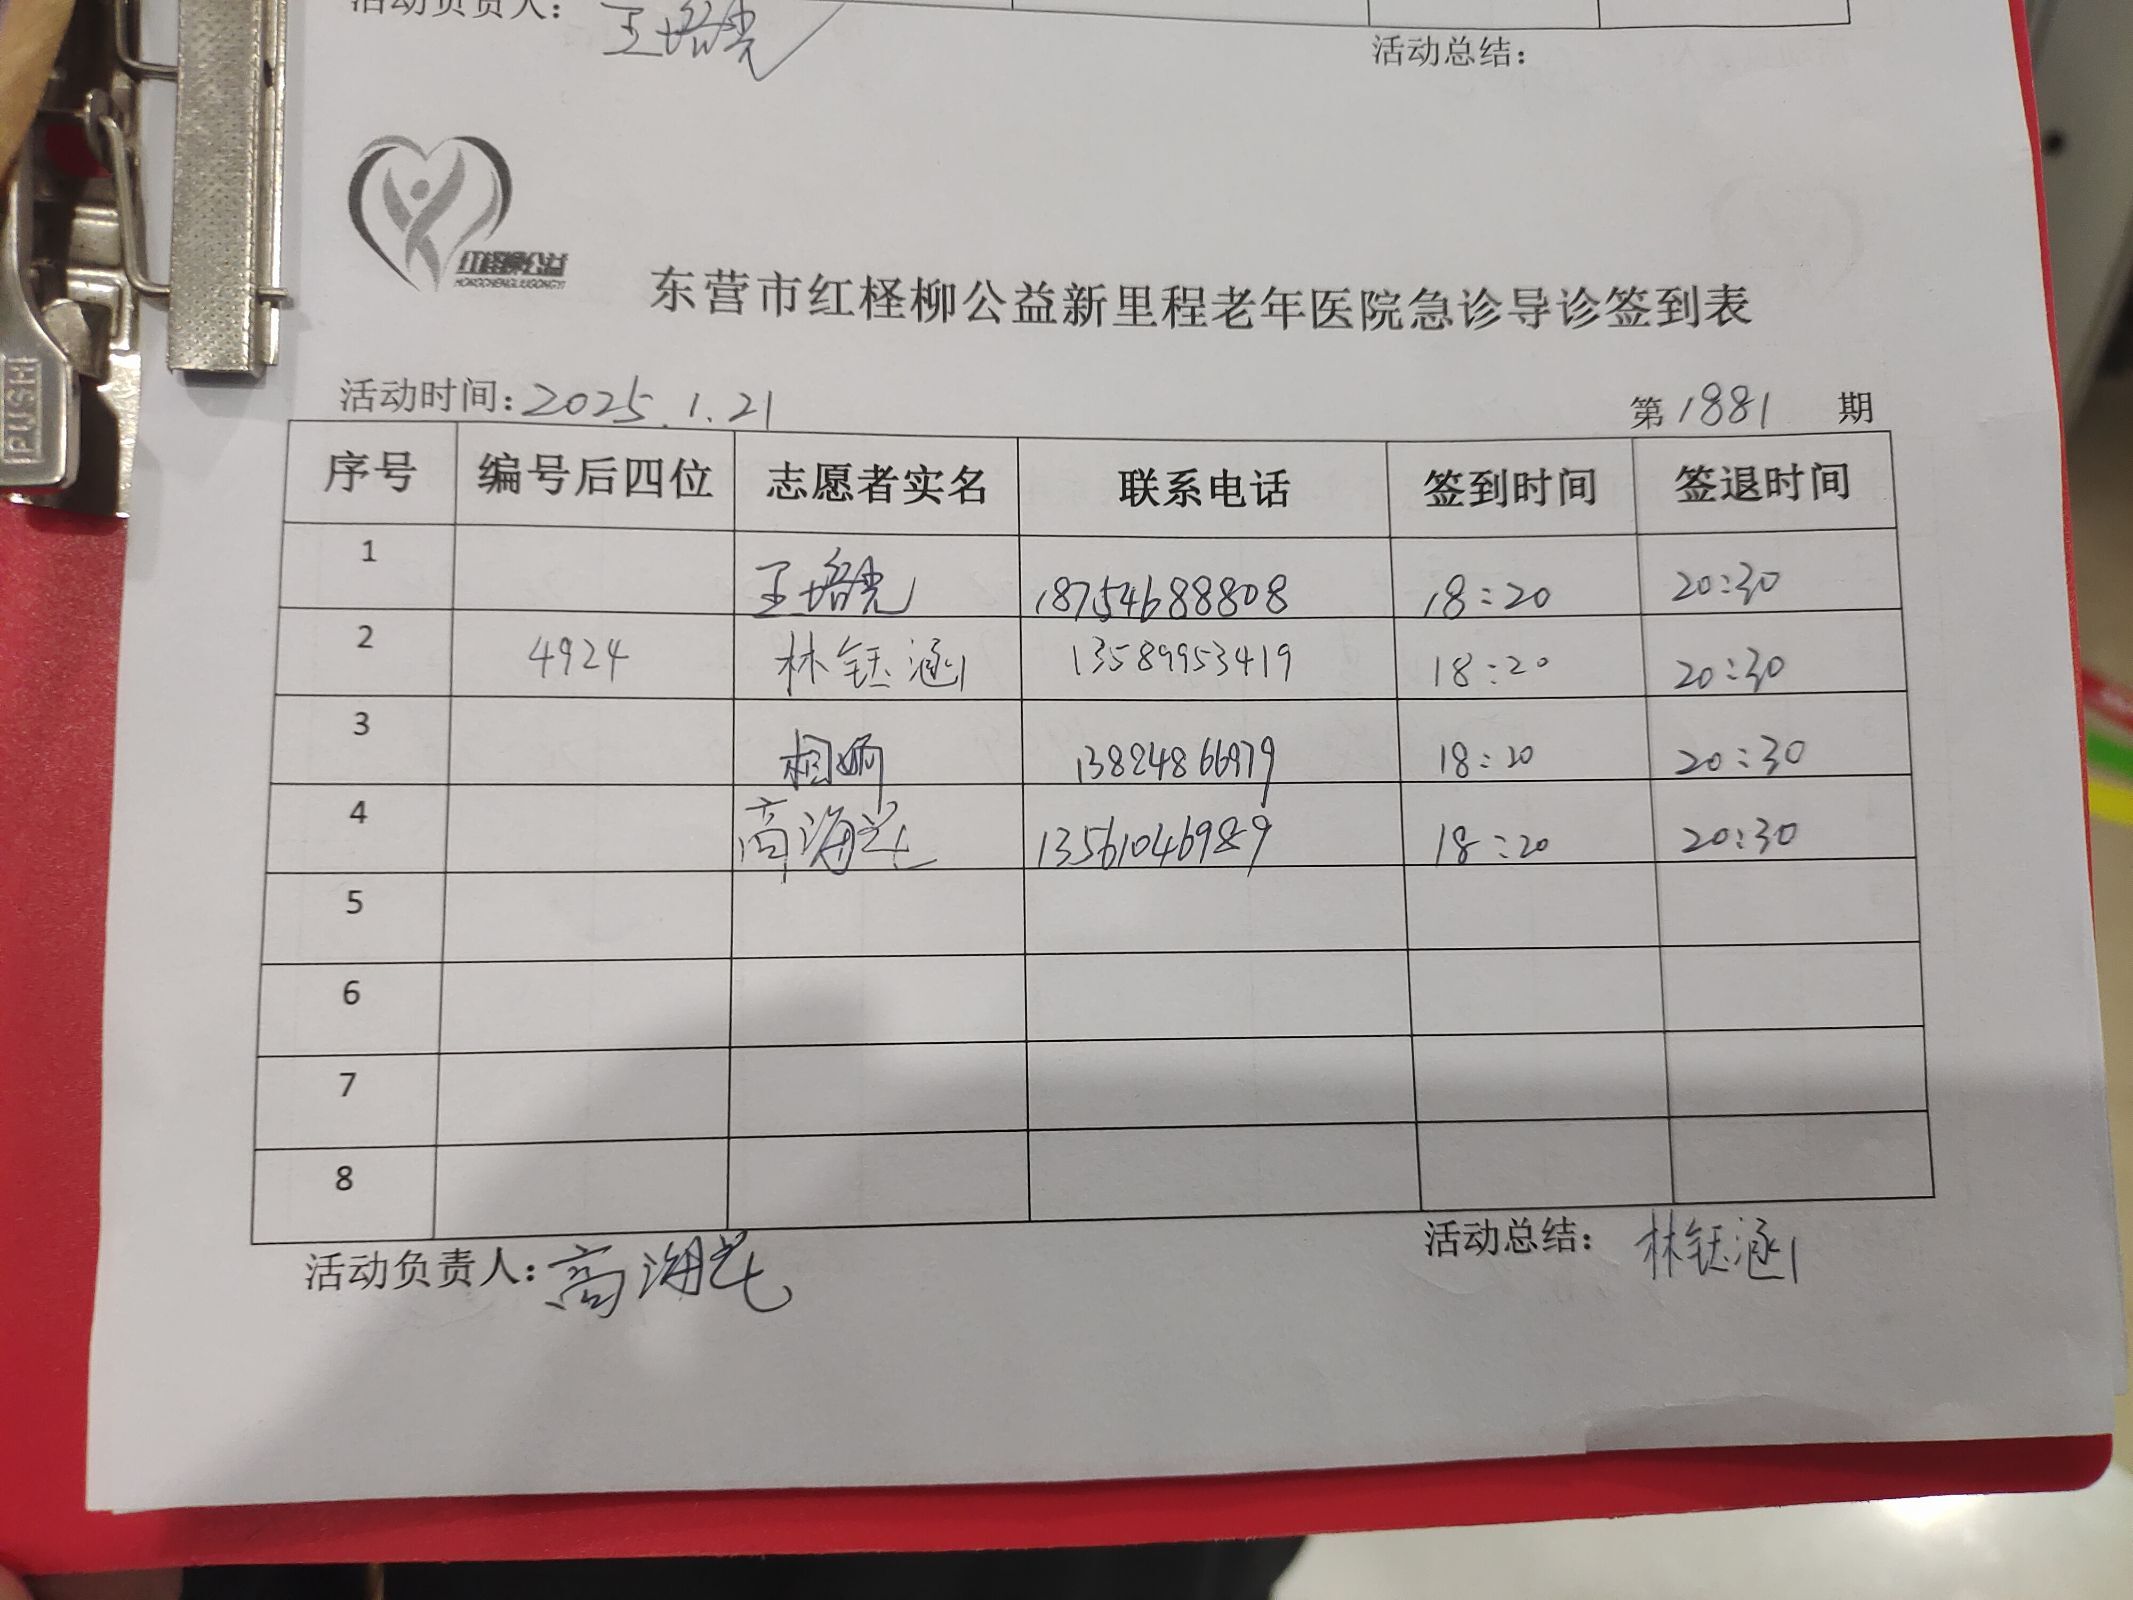 活动负责人：王培光
活动总结：
红柽柳公益
HONGCHENGLIUGONGYI
东营市红柽柳公益新里程老年医院急诊导诊签到表
活动时间：2025.1.21 第1881期
序号 编号后四位 志愿者实名 联系电话 签到时间 签退时间
1 王培光 18754688808 18:20 20:30
2 4924 林钰涵 13589953419 18:20 20:30
3 13824866979 18:20 20:30
4 高海 13561046989 18:20 20:30
5
6
7
8
活动负责人：高海
活动总结：林钰涵
PUSH